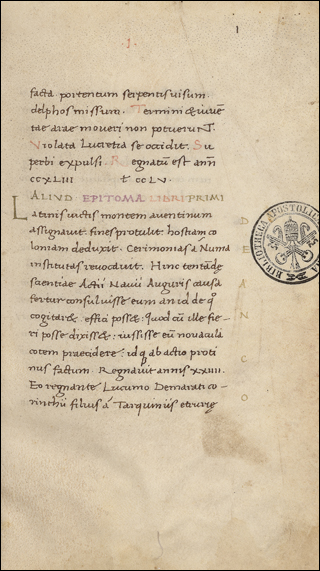 1
facta portentum serpentis uisum.
delphos missum. Termini & iuuē
tae arae moueri non potuerūt.
Violata Lucretia se occidit. Su
perbi expulsi. Regnatū est anñ
CCXLIII ł CCLV.
ALIVD EPITOMA LIBRI PRIMI
Latinis uictis montem auentinum
assignauit. fines protulit. hostiam co
loniam deduxit. Cerimonias a Numa
institutas reuocauit. Hinc tentādę
scientiae Actii Nauii Auguris causa
fertur consuluisse eum an id de q̄
cogitar& effici poss&: Quod cū ille fie-
ri posse dixiss&: iussisse eū nouacula
cotem praecidere: idq; ab actio proti
nus factum. Regnauit annis xxiiii.
Eo regnante Lucumo Demarati co-
rinthii filius á Tarquiniis etrurię
DEANCO
BIBLIOTHECA APOSTOLICA